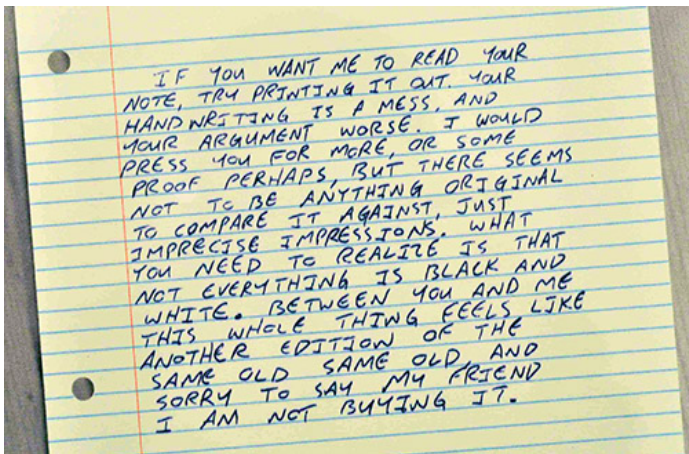 IF YOU WANT ME TO READ YOUR
NOTE, TRY PRINTING IT OUT. YOUR
HANDWRITING IS A MESS, AND
YOUR ARGUMENT WORSE. I WOULD
PRESS YOU FOR MORE, OR SOME
PROOF PERHAPS, BUT THERE SEEMS
NOT TO BE ANYTHING ORIGINAL
TO COMPARE IT AGAINST, JUST
IMPRECISE IMPRESSIONS. WHAT
YOU NEED TO REALIZE IS THAT
NOT EVERYTHING IS BLACK AND
WHITE. BETWEEN YOU AND ME
THIS WHOLE THING FEELS LIKE
ANOTHER EDITION OF THE
SAME OLD SAME OLD, AND
SORRY TO SAY MY FRIEND
I AM NOT BUYING IT.